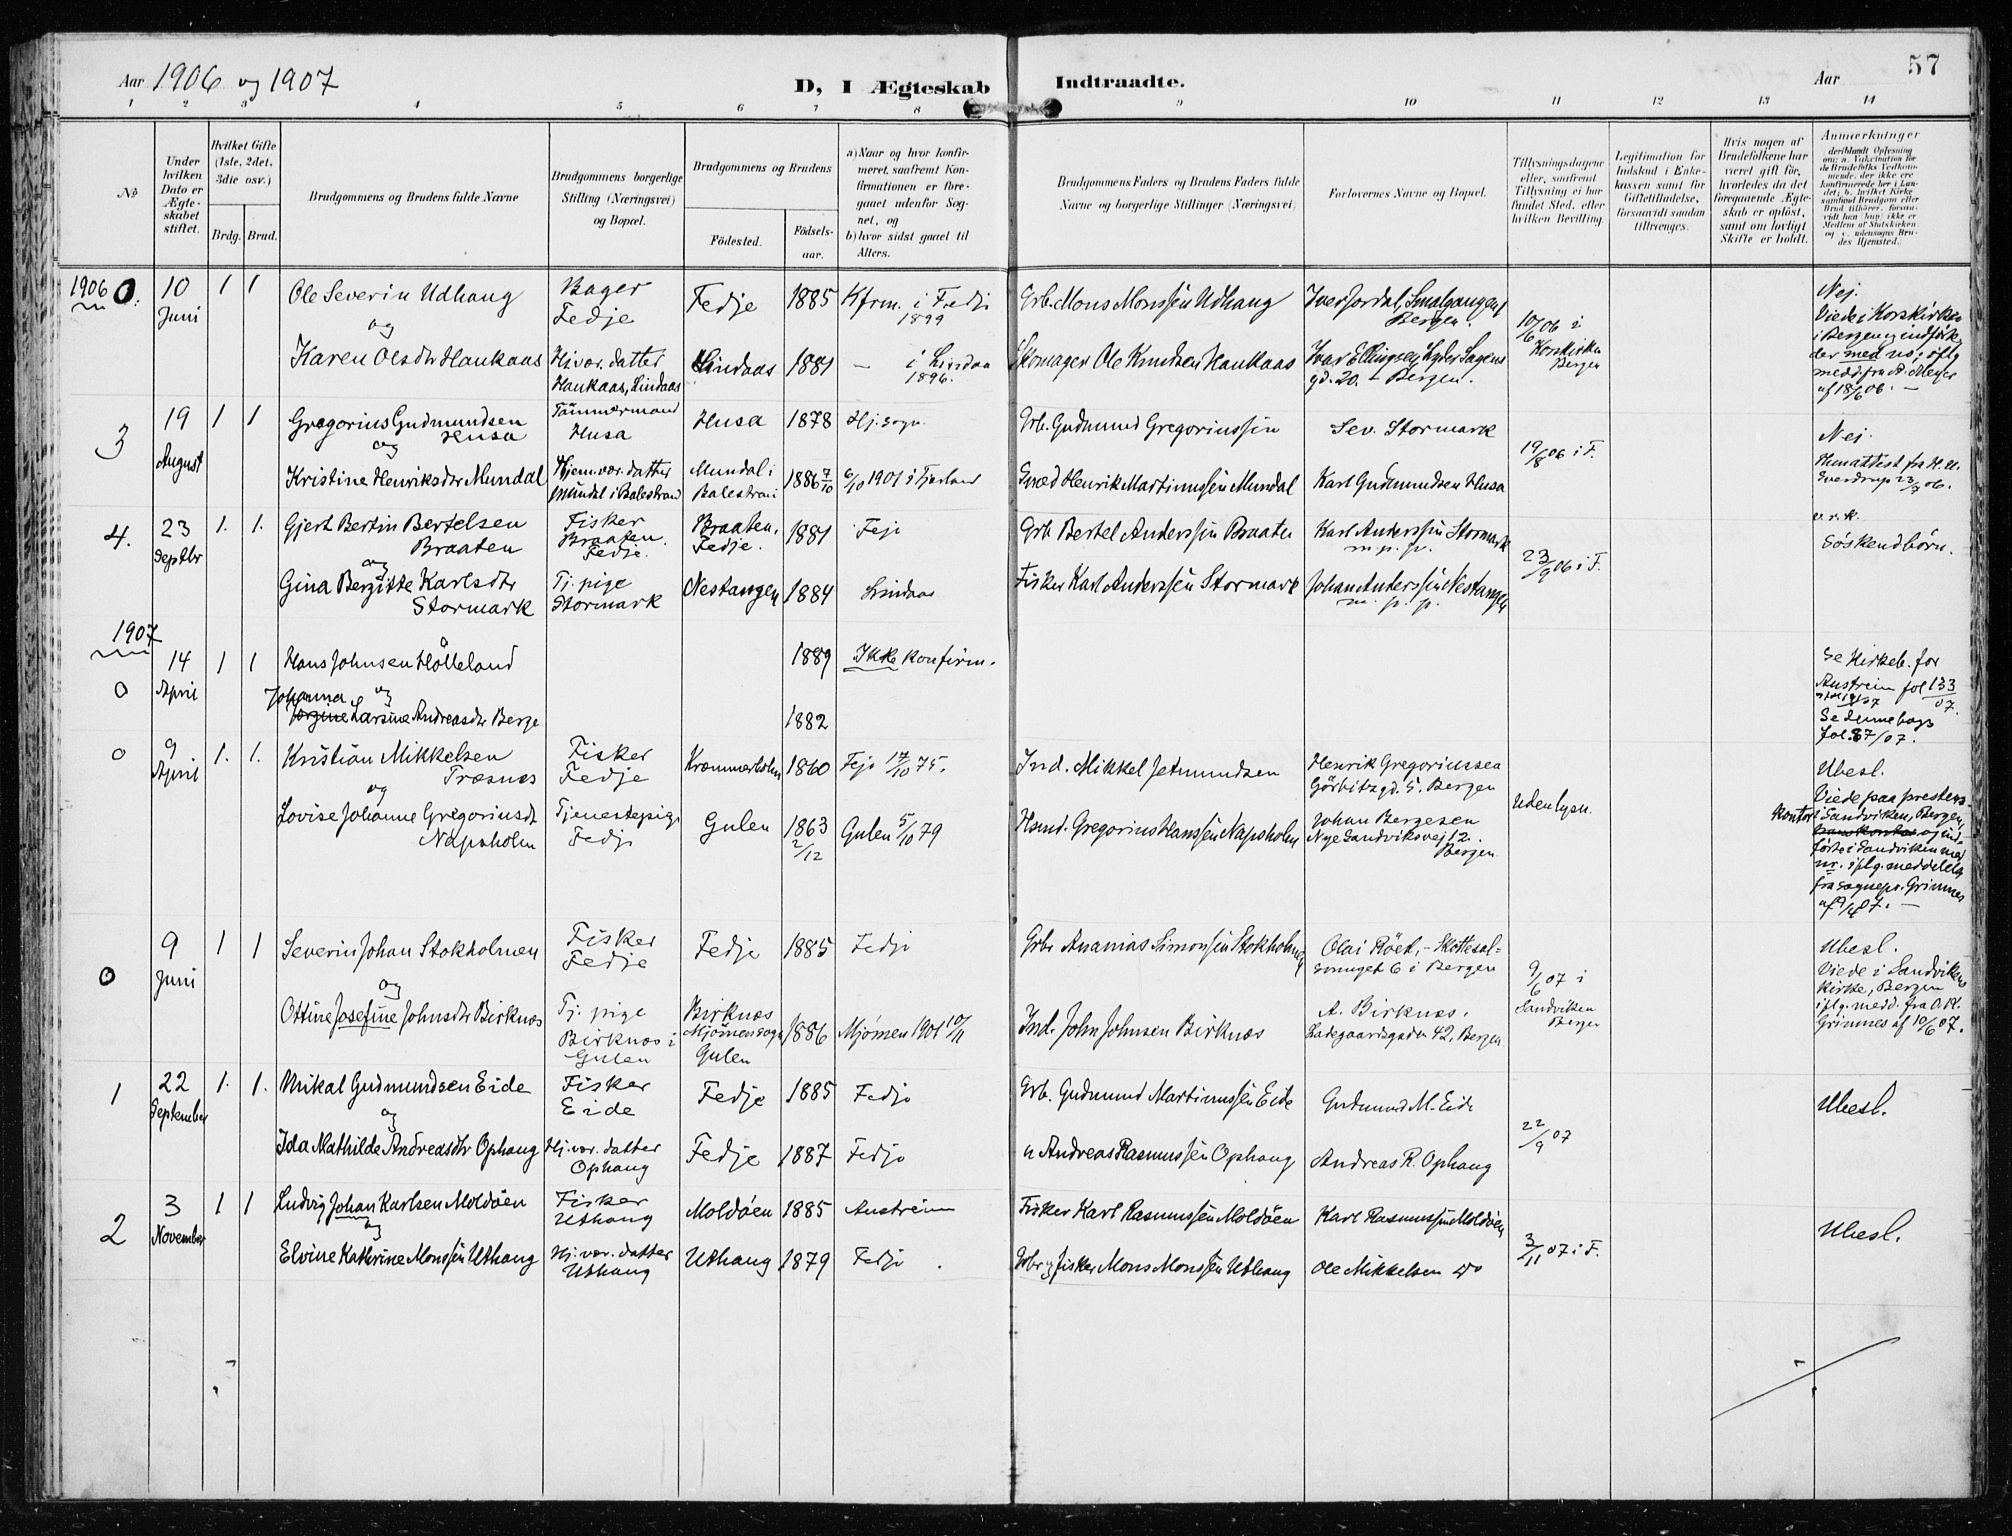 Aar 1906 og 1907
D, I Ægteskab Indtraadte.
Aar
57
1 2 3 4 5 6 7 8 9 10 11 12 13 14
No
Under hvilken Dato er Ægteskabet stiftet.
Hvilket Gifte (1ste, 2det, 3die osv.)
Brdg. Brud.
Brudgommens og Brudens fulde Navne
Brudgommens borgerlige Stilling (Næringsvei) og Bopæl.
Brudgommens og Brudens
Födested.
Födselsaar.
a) Naar og hvor konfirmeret, saafremt Konfirmationen er foregaaet udenfor Sognet, og
b) hvor sidst gaaet til Alters.
Brudgommens Faders og Brudens Faders fulde Navne og borgerlige Stillinger (Næringsvei)
Forlovernes Navne og Bopæl.
Tillysningsdagene eller, saafremt Tillysning ei har fundet Sted, efter hvilken Bevilling.
Legitimation for Indskud i Enkekassen samt for Giftetilladelse, forsaavidt saadan tiltrænges.
Hvis nogen af Brudefolkene har været gift för, hvorledes da det foregaaende Ægteskab er oplöst, samt om lovligt Skifte er holdt.
Anmerkninger
deriblandt Oplysning om: a. Vakcination for de Brudefolks Vedkommende, der ikke ere konfirmerede her i Landet; b. hvilket Kirkesamfund Brudgom eller Brud tilhörer, forsaavidt han hun ikke er Medlem af Statskirken og c. udensogns Brudes Hjemsted.
1906 0. 10 Juni 1 1 Ole Severin Udhaug Bager Fedje Fedje 1885 Kfrm. i Fedje 1899 Grb. Mons Monssen Udhaug Iver Jordal, Smalgangen, Bergen. 10/6 06 i Korskirken Bergen
og
Karen Olsdtr Haukaas Hj.vær. datter Haukaas, Lindaas Lindaas 1881 — i Lindaas 1896. Skomager Ole Knudsen Haukaas Ivar Ellingsen, Lyder Sagens gd. 20. – Bergen.
Nej.
Viede i Korskirken i Bergen og indförte der med no; iflg medd. fra A. Meyer af 18/6 06. —
3 19 August 1 1 Gregorius Gudmundsen Husa Tömmermand Husa Husa 1878 Hj. sogn. Grb. Gudmund Gregoriussen Sev. Stormark 19/8 06 i F. Nej.
og
Kristine Henriksdtr Mundal Hjem.vær. datter Mundal i Balestrand Mundal i Balestrand 1886 7/10 6/10 1901 i Fjærland Smed Henrik Martinussen Mundal Karl Gudmundsen Husa
4. 23 Septbr 1. 1. Gjert Bertin Bertelsen Braaten Fisker Braaten. Fedje. Braaten. Fedje. 1881 Feje Grb Bertel Anderssen Braaten Karl Anderssen Stormark m. p. p. 23/9 06 i F. Söskendbörn.
og
Gina Bergitte Karlsdtr Stormark Tj. pige Stormark Nestangen 1884 Lindaas Fisker Karl Anderssen Stormark Johan Anderssen Nestangen m. p. p.
1907
0 14 April 1 1 Hans Johnsen Hålleland 1889 Ikke konfirm. Se Kirkeb. for Austrein fol 133/07.
og
Johanna Larsine Andreasdtr Berge 1882
fol. 87/07.
0 9 April 1. 1. Kristian Mikkelsen Træsnes Fisker Fedje Kræmmerholm 1860 Feje 17/10 75. Ind. Mikkel Jetmundsen Henrik Gregoriussen Görbitzgd. 5. Bergen Uden lysn. Ubesl.
og
Lovise Johanne Gregoriusdtr Napsholm Tjenestepige Fedje Gulen 1863 2/12 Gulen 5/10 79 Hsmd. Gregorius Hanssen Napsholm Johan Bergesen Nye Sandviksvej 12. Bergen.
Viede paa prestens kontor i Sandviken, Bergen, og indförte i Sandviken med nr. iflg. meddelelse fra sognepr. Grimnes af 9/4 07. —
0 9 Juni 1 1 Severin Johan Stokholmen Fisker Fedje Fedje 1885 Fedje Grbr Ananias Simonsen Stokholmen Olai Röet, – Skottesalsmuget 6 i Bergen 9/6 07 i Sandviken Bergen Ubesl.
og
Ottine Josefine Johnsdtr Birknæs Tj. pige Birknæs i Gulen Birknæs Mjömen sogn Gulen 1886 Mjömen 1901 10/11 Ind. John Johnsen Birknæs A. Birknæs. Ladegaardsgaden 42, Bergen
Viede i Sandvikens Kirke, Bergen iflg. medd. fra O. K. Grimnes af 10/6 07.
1 22 September 1. 1. Mikal Gudmundsen Eide Fisker Eide Fedje 1885 Fedje Grb. Gudmund Martinussen Eide Gudmund M. Eide 22/9 07 Ubesl.
og
Ida Mathilde Andreasdtr Ophaug Hj. vær. datter Ophaug Fedje 1887 Fedje " Andreas Rasmussen Ophaug Andreas R. Ophaug
2 3 November 1 1 Ludvig Johan Karlsen Moldöen Fisker Uthaug Moldöen 1885 Austrein Fisker Karl Rasmussen Moldöen Karl Rasmussen Moldöen 3/11 07 i F. Ubesl.
og
Elvine Kathrine Monssen Uthaug Hj. vær. datter Uthaug Uthaug 1879 Fedje Grbr og fisker Mons Monssen Uthaug Ole Mikkelsen do